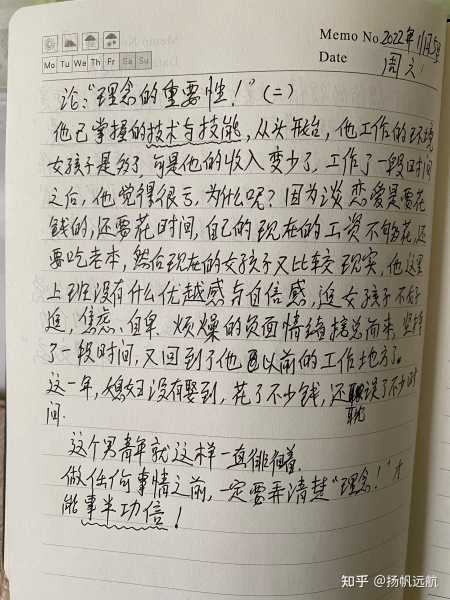 Memo No. 2022年11月5号
Memo No
Date 周六!
Mo Tu We Th Fr Sa Su
论:"理念的重要性!"(二)
他已掌握的技术与技能,从头开始,他工作的环境
女孩子是多了 可是他的收入变少了,工作了一段时间
之后,他觉得很亏,为什么呢?因为谈恋爱是要花
钱的,还要花时间,自己的现在的工资不够花,还
要吃老本,然后现在的女孩子又比较现实,他这里
上班没有什么优越感与自信感,追女孩子不好
追,焦虑、自卑、烦燥的负面情绪接总而来,坚持
了一段时间,又回到了他以前的工作地方了。
这一年,媳妇没有娶到,花了不少钱,还耽误了不少时
间.
这个男青年就这样一直徘徊着.
做任何事情之前,一定要弄清楚"理念!"才
能事半功倍!
知乎 @扬帆远航